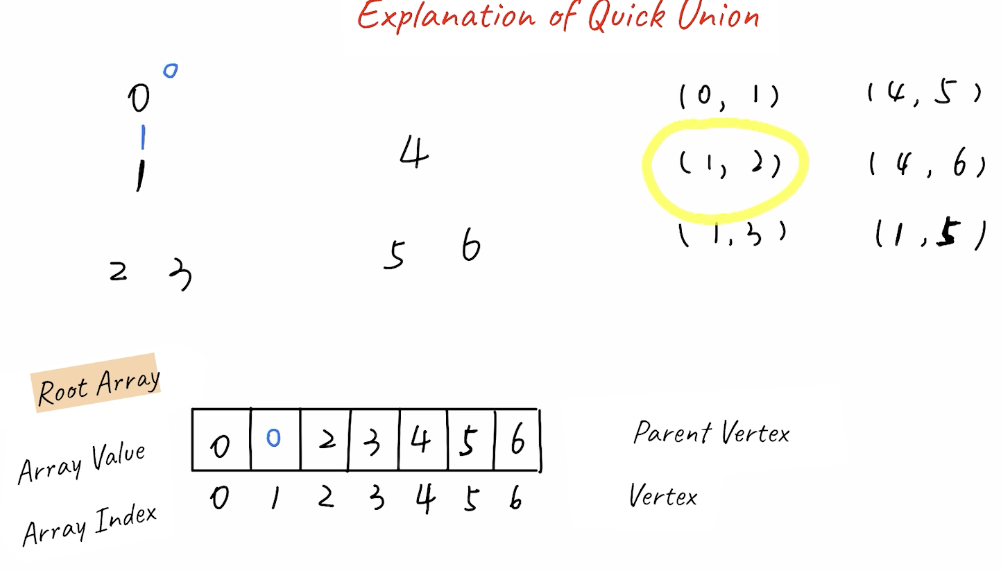 Explanation of Quick Union
0
0
1
4
5 6
2 3
(0, 1) (4, 5)
(1, 2) (4, 6)
(1, 3) (1, 5)
Root Array
Array Value 0 0 2 3 4 5 6 Parent Vertex
Array Index 0 1 2 3 4 5 6 Vertex